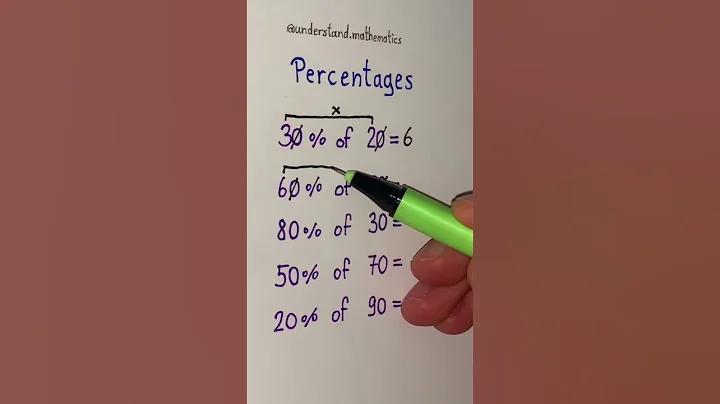 @understand.mathematics
Percentages
×
30% of 20=6
60% of
80% of 30=
50% of 70=
20% of 90=